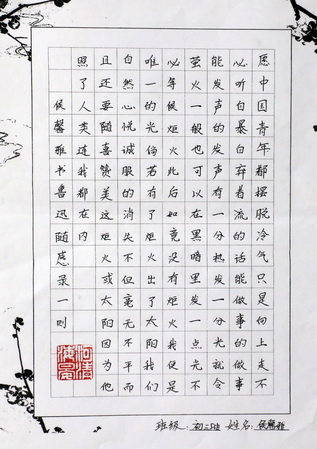 愿中国青年都摆脱冷气只是向上走不
必听自暴自弃着流的话能做事的做事
能发声的发声有一分热发一分光就令
萤火一般也可以在黑暗里发一点光不
必等候炬火此后如竟没有炬火我便是
唯一的光倘若有了炬火出了太阳我们
自然心悦诚服的消失不但毫无不平而
且还要随喜赞美这炬火或太阳因为他
照了人类连我都在内
侯馨雅书鲁迅随感录一则
班级：初三 姓名：侯馨雅